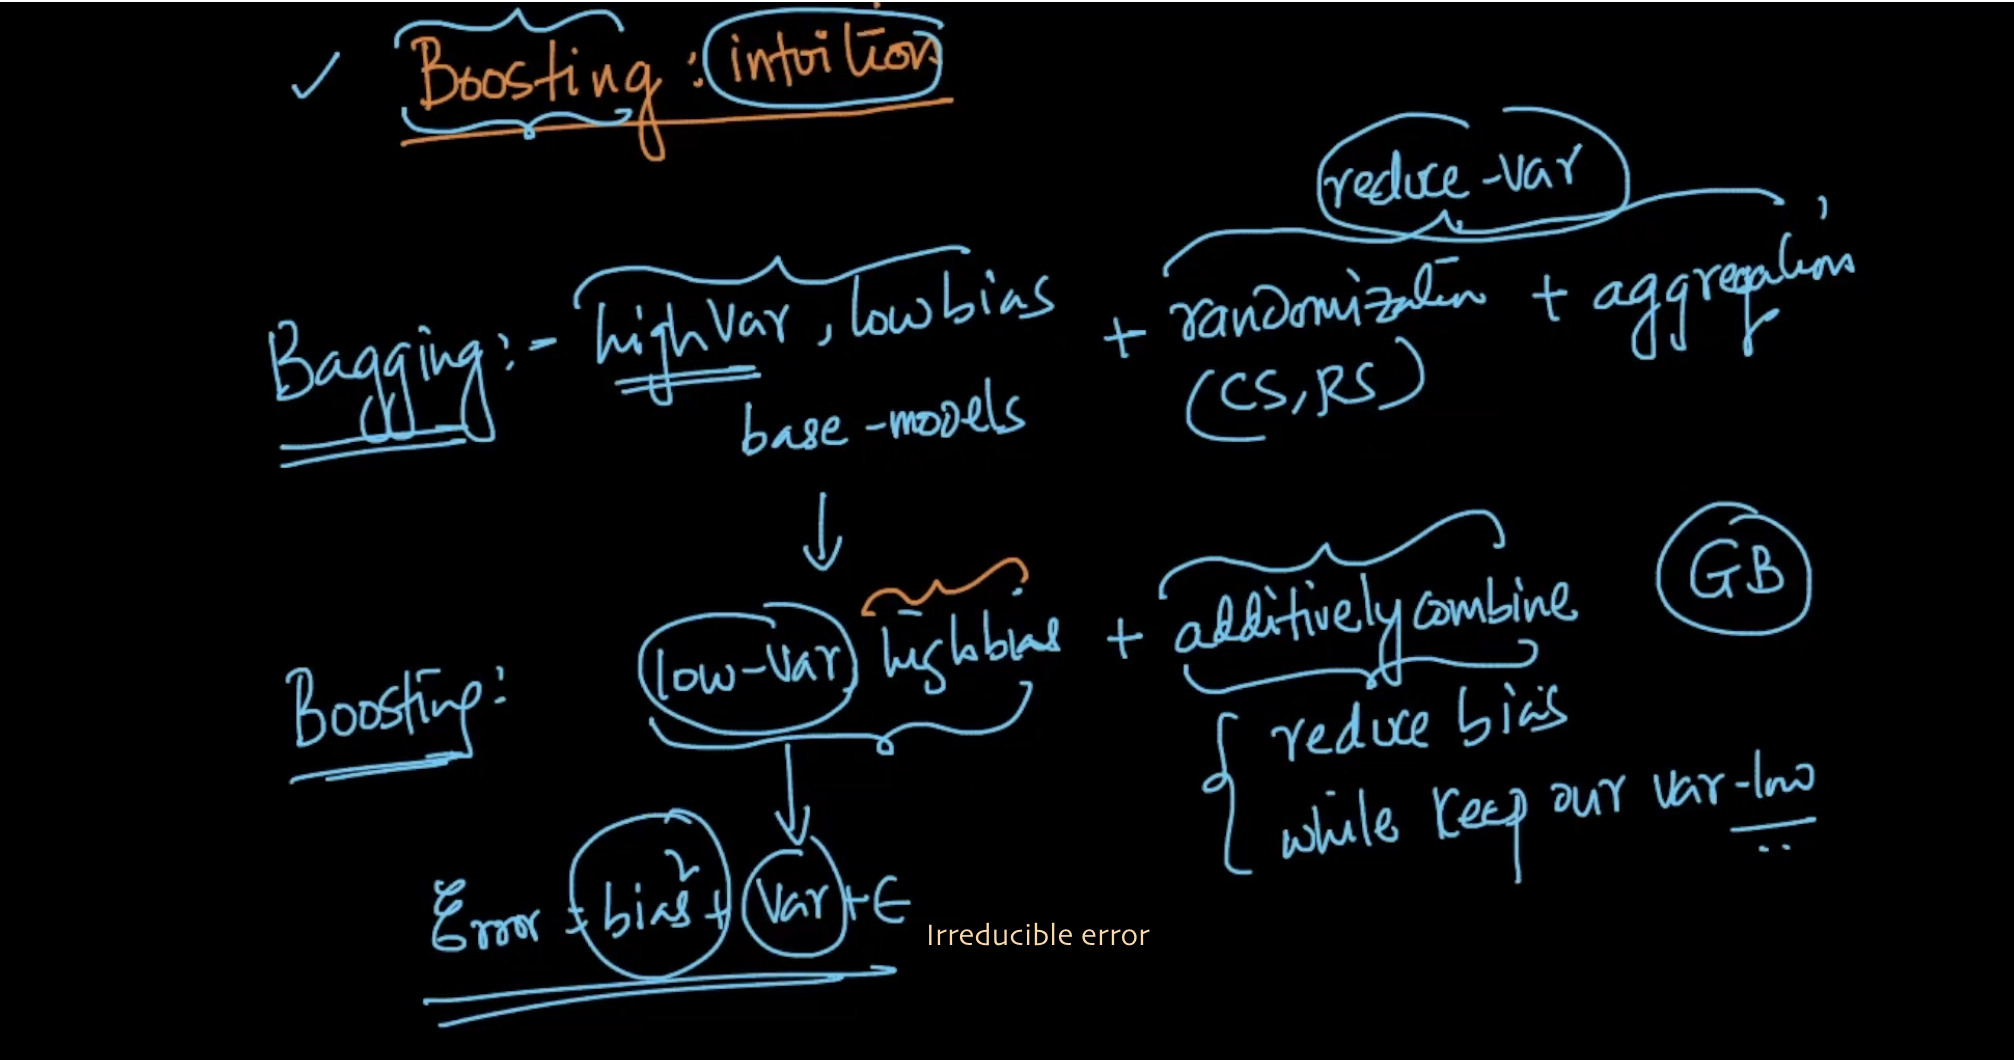 ✓ Boosting : intuition
reduce-var
Bagging :- high var, low bias + randomization + aggregations
base-models (CS, RS)
↓
GB
Boosting: low-var high bias + additively combine
reduce bias
while keep our var-low
Error = bias² + var + ε
Irreducible error